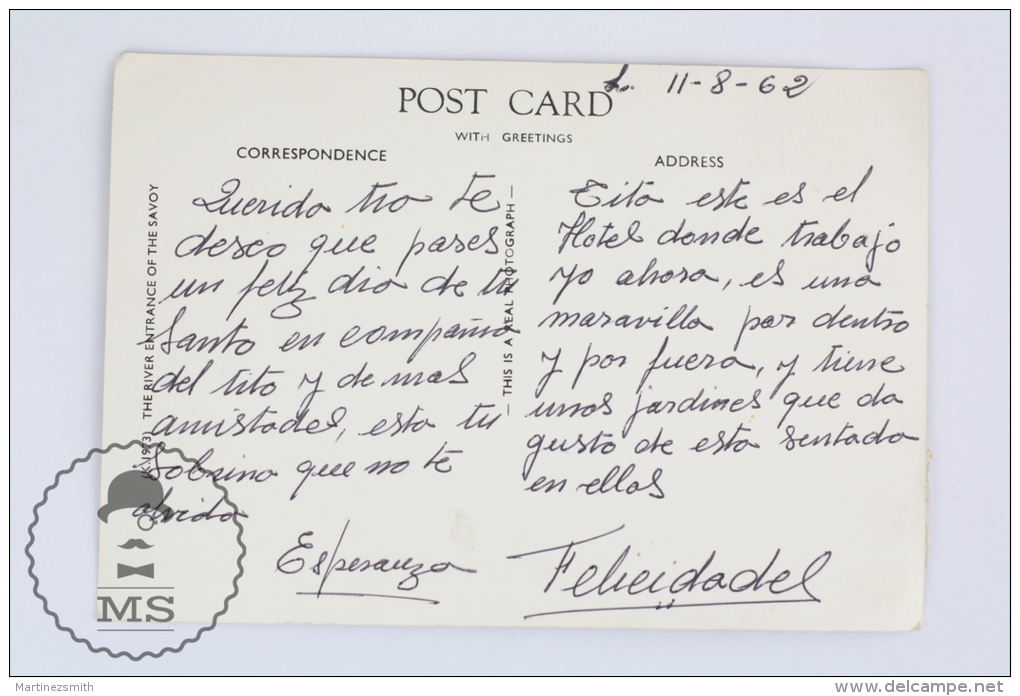 L. 11-8-62
POST CARD
WITH GREETINGS
CORRESPONDENCE
ADDRESS
Querida tia te
deseo que pases
un feliz dia de tu
Santo en compañia
del tito y demas
amistades, esta tu
Sobrina que no te
olvida
Esperanza
Tita este es el
Hotel donde trabajo
yo ahora, es una
maravilla por dentro
y por fuera, y tiene
unos jardines que da
gusto de esta sentada
en ellos
Felicidades
(K.1973) THE RIVER ENTRANCE OF THE SAVOY
— THIS IS A REAL PHOTOGRAPH —
MS
Martinezsmith
www.delcampe.net